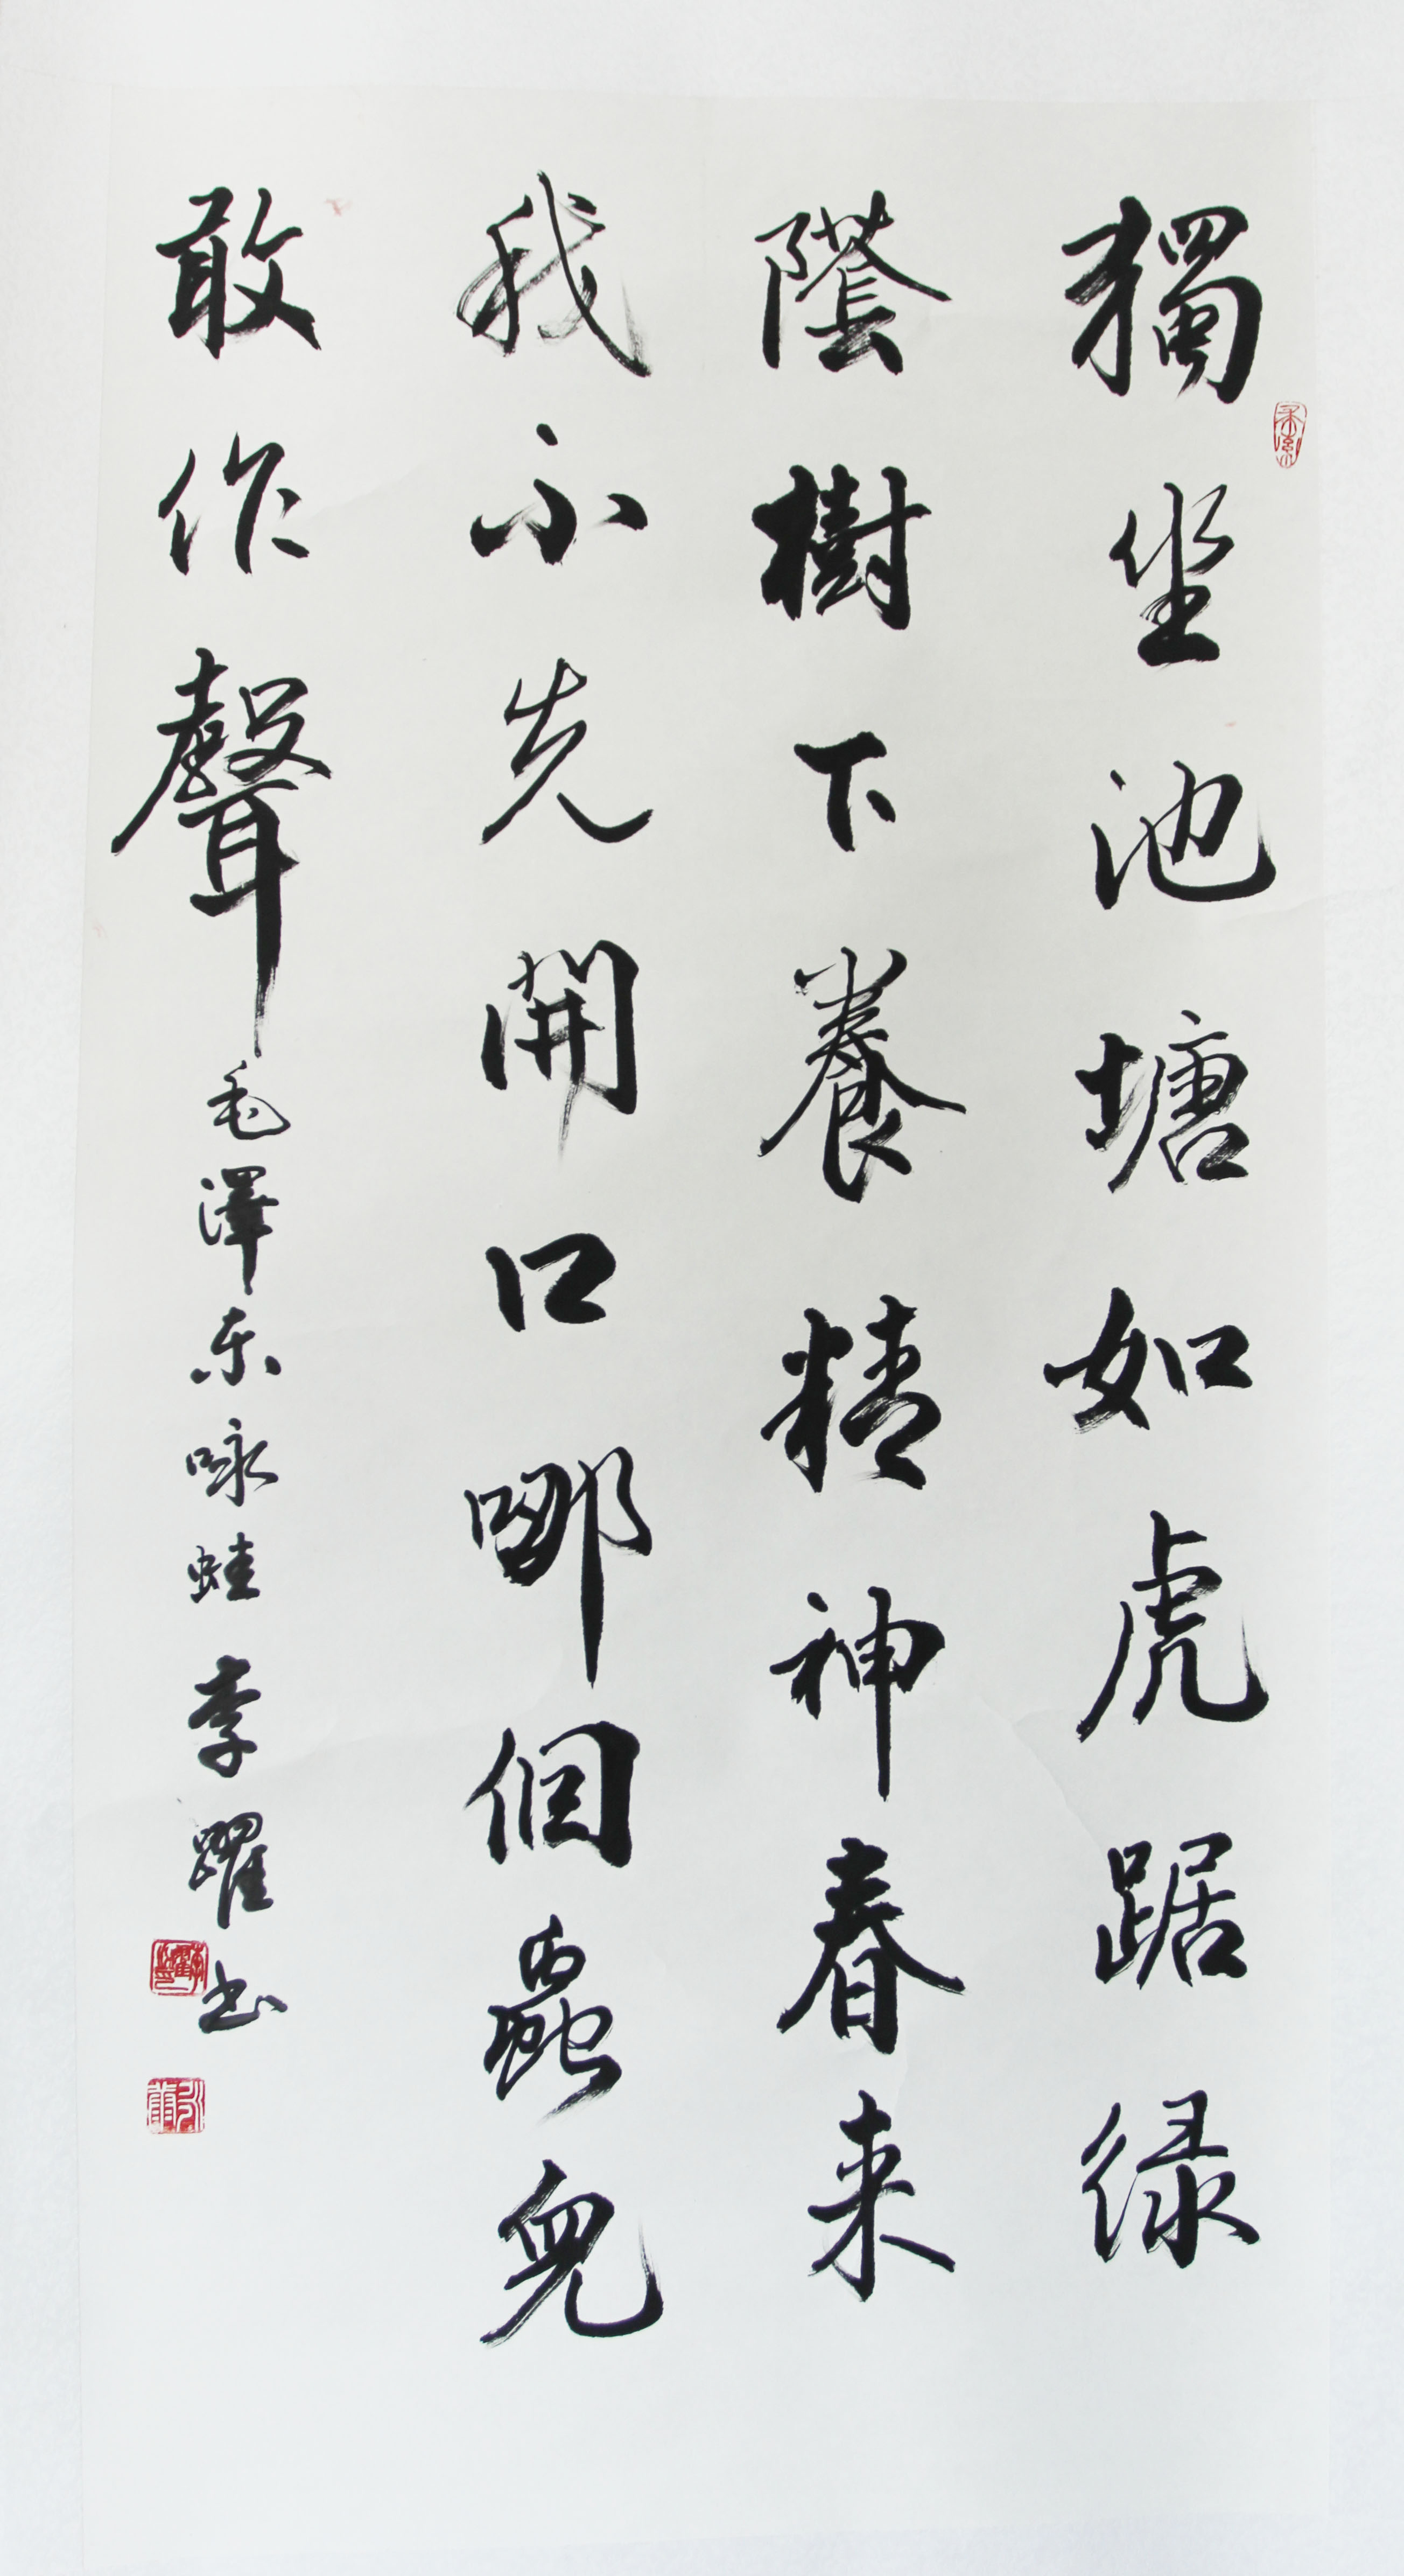 獨坐池塘如虎踞绿
蔭樹下養精神春来
我不先開口哪個蟲兒
敢作聲毛澤东咏蛙李躍书